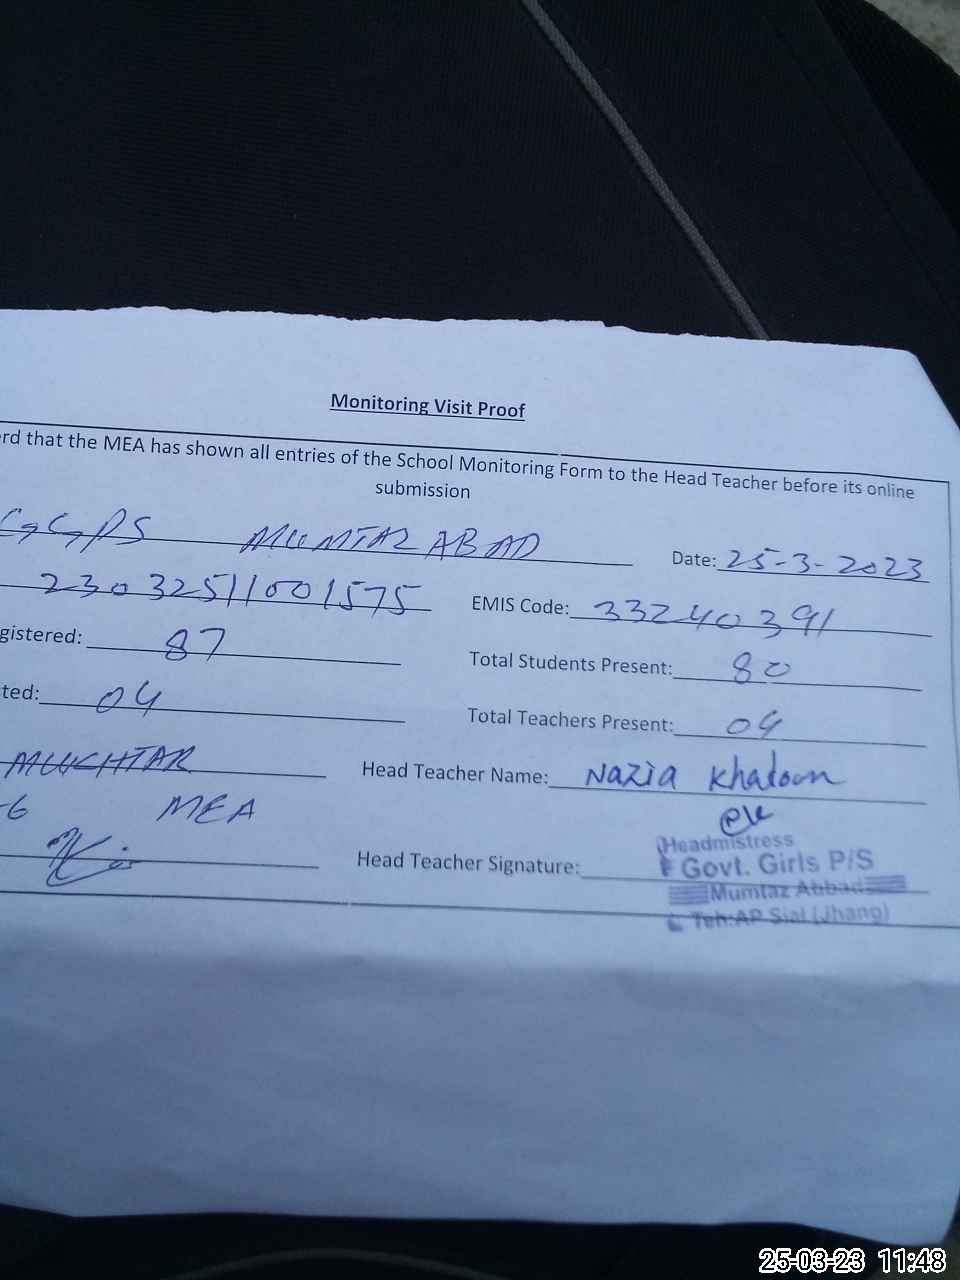 Monitoring Visit Proof
rd that the MEA has shown all entries of the School Monitoring Form to the Head Teacher before its online
submission
GGPS MUMTAZ ABAD Date: 25-3-2023
23032511001575 EMIS Code: 33240391
gistered: 87 Total Students Present: 80
ted: 04 Total Teachers Present: 04
MUKHTAR Head Teacher Name: Nazia Khatoon
-6 MEA
Head Teacher Signature:
Headmistress
Govt. Girls P/S
Mumtaz Abbad
Teh:AP Sial (Jhang)
25-03-23 11:48